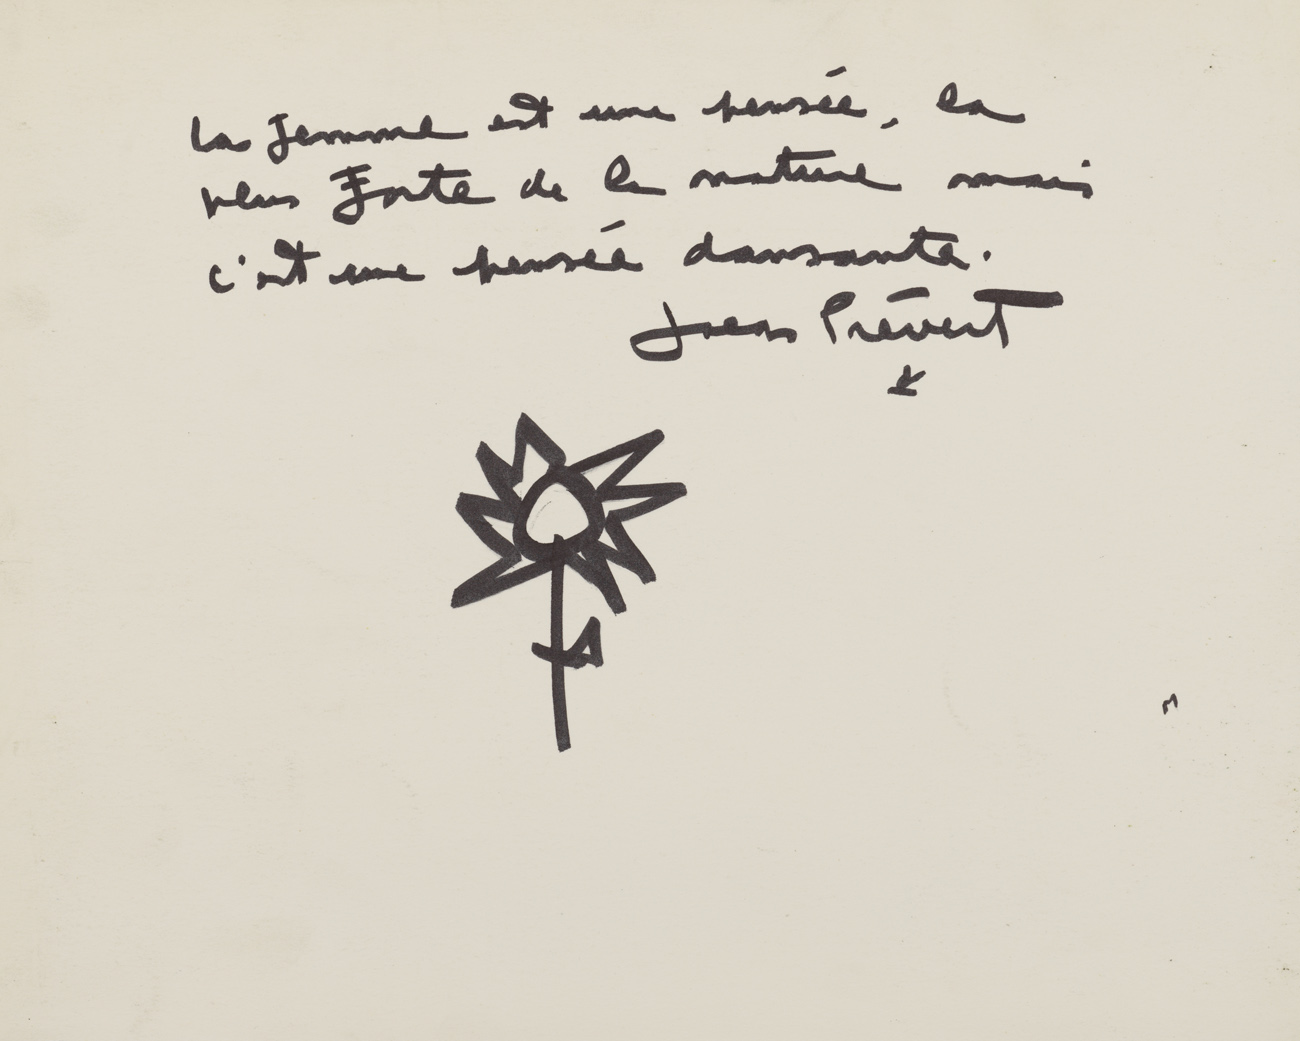 La femme est une pensée, la
plus Forte de la nature mais
c'est une pensée dansante.
Jean Prévert